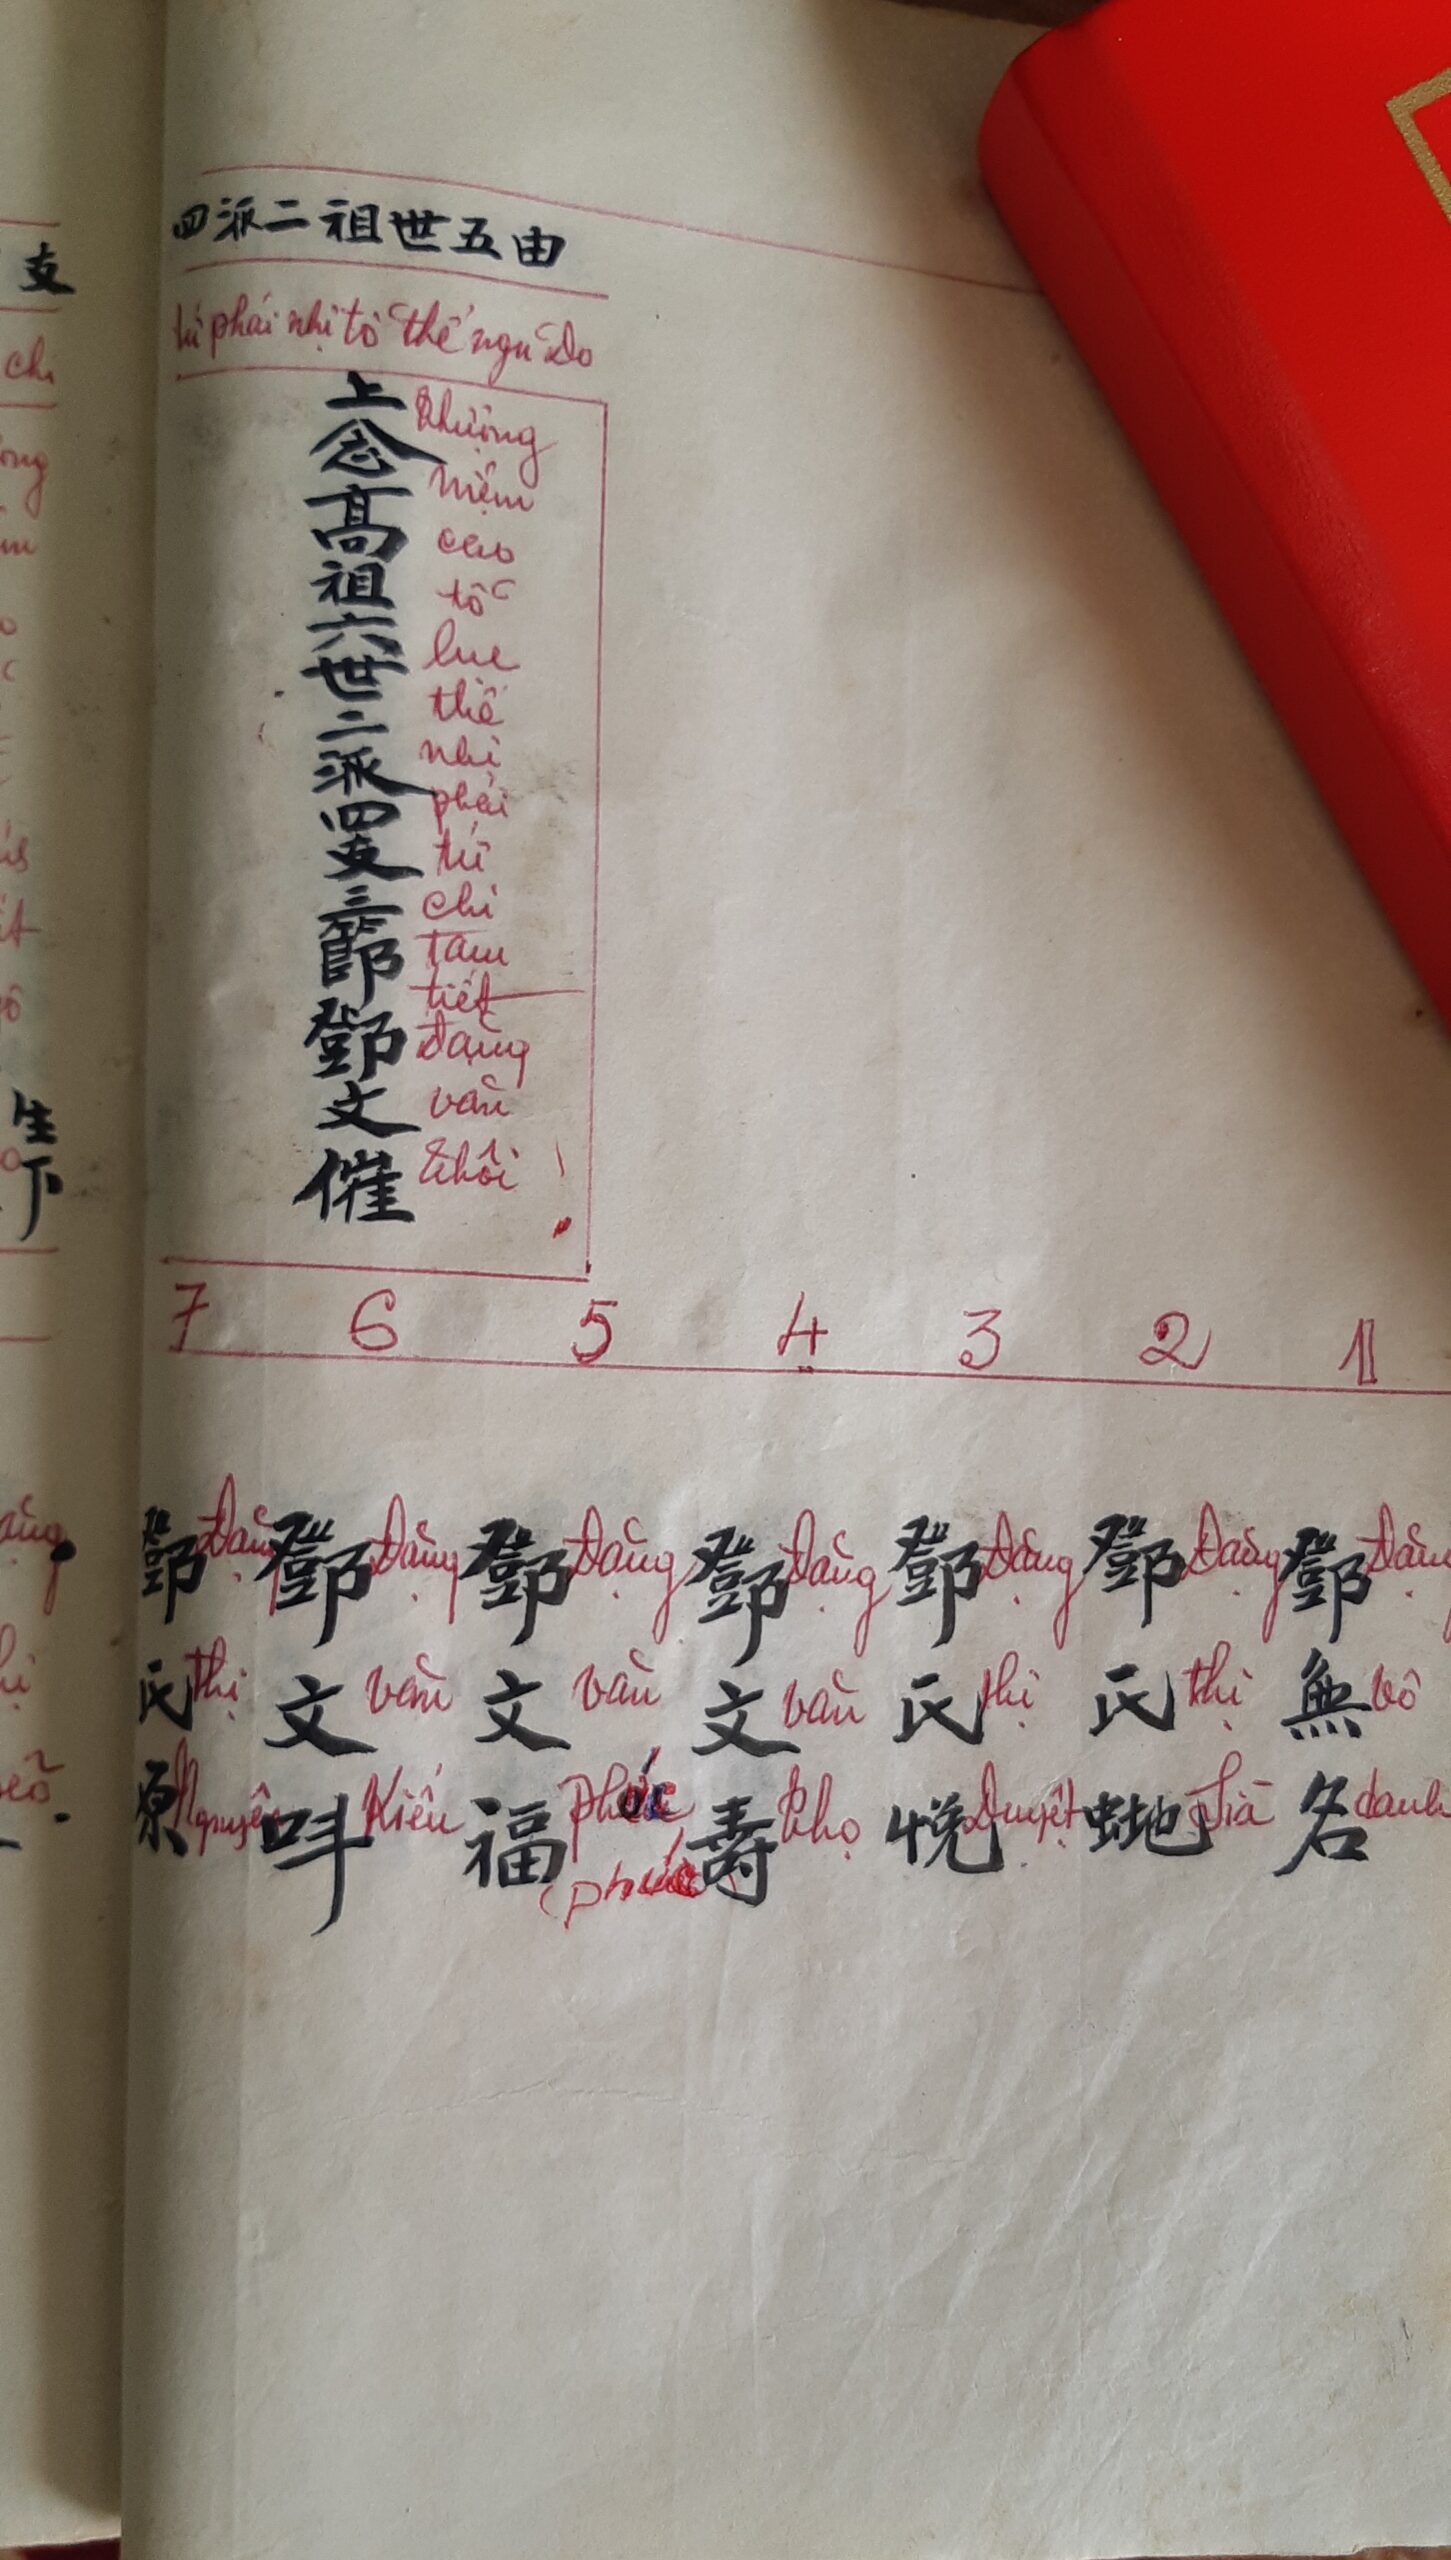 四派二祖世五由
tứ phái nhị tổ thế ngũ Do
上念高祖六世二派四支三節鄧文催
thượng
niệm
cao
tổ
lục
thế
nhị
phái
tứ
chi
tam
tiết
Đặng
văn
thôi
7 6 5 4 3 2 1
鄧無名
Đặng
vô
danh
鄧氏虵
Đặng
thị
鄧氏悅
Đặng
thị
Duyệt
鄧文壽
Đặng
văn
thọ
鄧文福
Đặng
văn
phúc
(phúc)
鄧文呌
Đặng
văn
Kiếu
鄧氏原
Đặng
thị
Nguyên
支
chi
生下